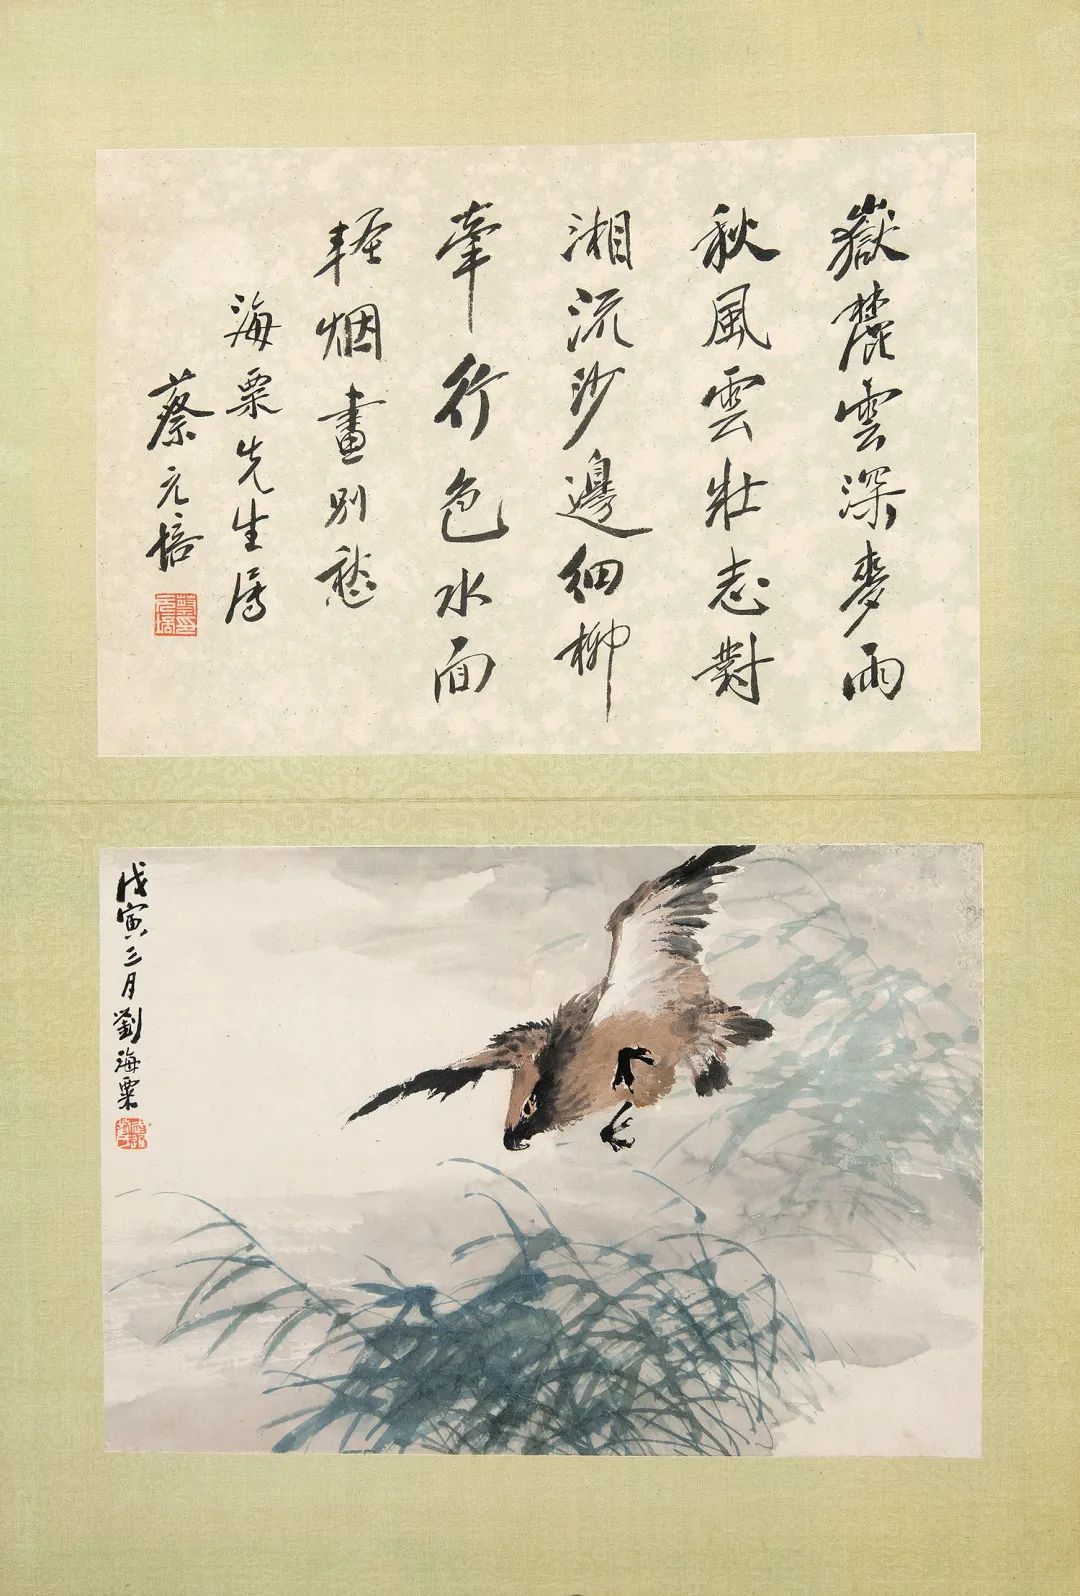 嶽麓雲深麥雨
秋風雲壯志對
湘流沙邊細柳
牽行色水面
軽烟畫別愁
海粟先生属
蔡元培
戊寅三月劉海粟